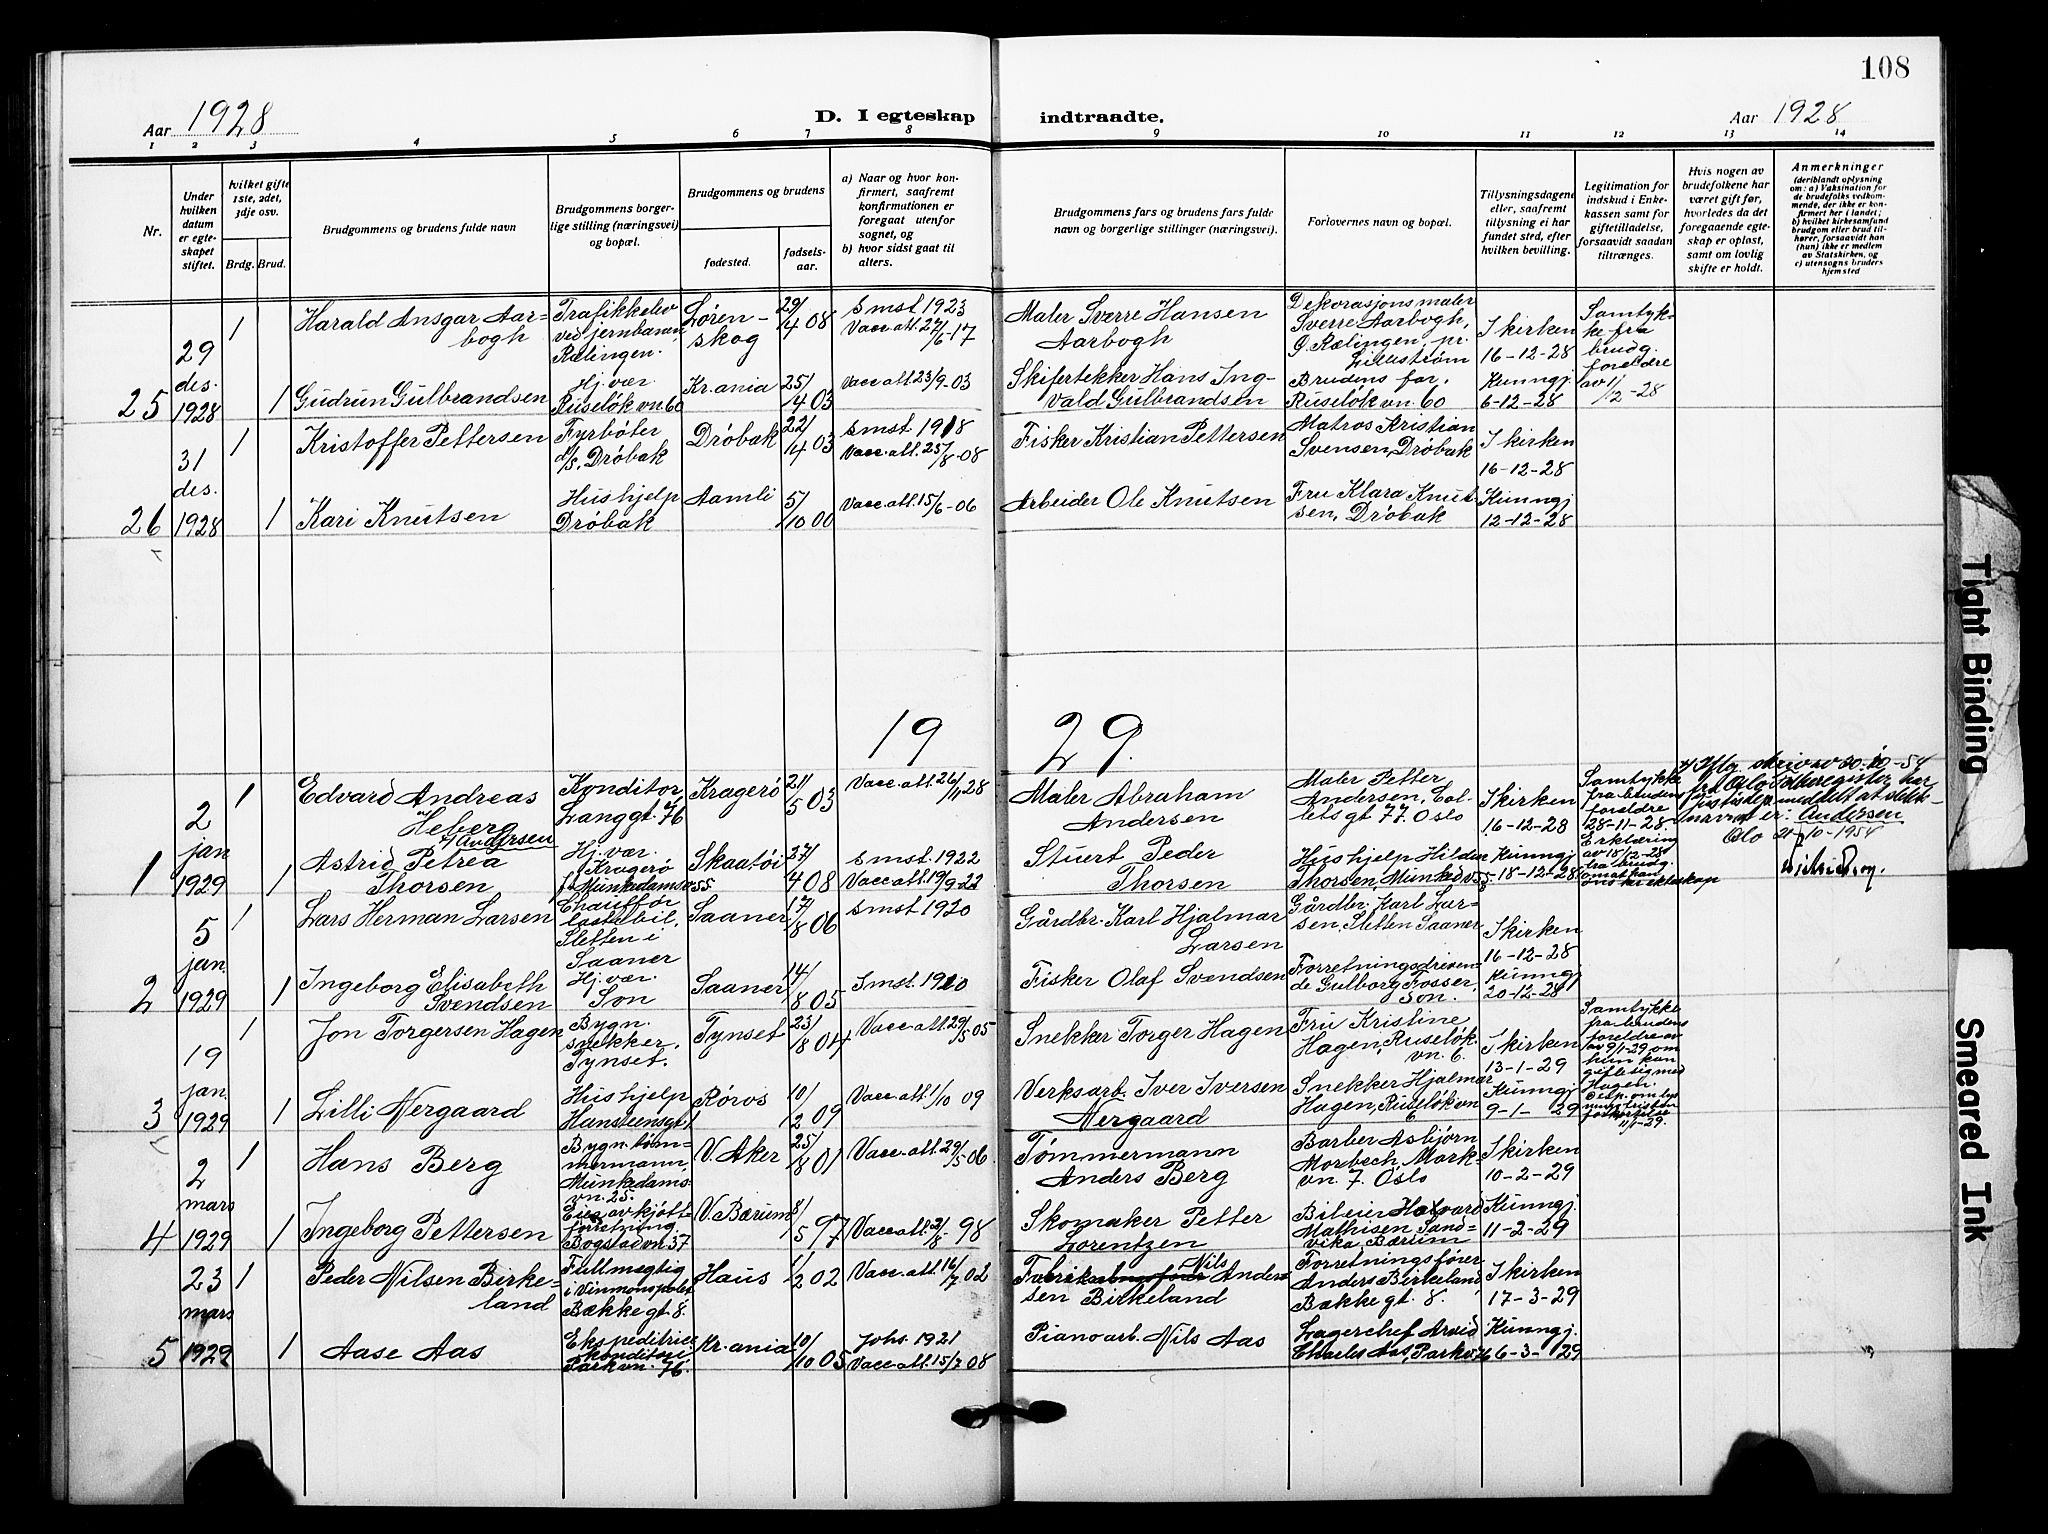 108
Aar 1928
D. I egteskap indtraadte.
Aar 1928
1 2 3 4 5 6 7 8 9 10 11 12 13 14
Nr.
Under hvilken datum er egteskapet stiftet.
hvilket gifte 1ste, 2det, 3dje osv.
Brdg. Brud.
Brudgommens og brudens fulde navn
Brudgommens borgerlige stilling (næringsvei) og bopæl.
Brudgommens og brudens
fødested.
fødselsaar.
a) Naar og hvor konfirmert, saafremt konfirmationen er foregaat utenfor sognet, og
b) hvor sidst gaat til alters.
Brudgommens fars og brudens fars fulde navn og borgerlige stillinger (næringsvei).
Forlovernes navn og bopæl.
Tillysningsdagene eller, saafremt tillysning ei har fundet sted, efter hvilken bevilling.
Legitimation for indskud i Enkekassen samt for giftetilladelse, forsaavidt saadan tiltrænges.
Hvis nogen av brudefolkene har været gift før, hvorledes da det foregaaende egteskap er opløst, samt om lovlig skifte er holdt.
Anmerkninger
(deriblandt oplysning om: a) Vaksination for de brudefolks vedkommende, der ikke er konfirmert her i landet; b) hvilket kirkesamfund brudgom eller brud tilhører, forsaavidt han (hun) ikke er medlem av Statskirken, og c) utensogns bruders hjemsted
25
29 des. 1928
1
Harald Ansgar Aarbogh
Trafikkelev ved jernbanen, Rælingen.
Lørenskog
29/4 08
Smst 1923
Vacc. att. 27/6-17
Maler Sverre Hansen Aarbogh
Dekorasjonsmaler Sverre Aarbogh, G. Rælingen, pr. Lillestrøm
I kirken 16-12-28
Samtykke fra brudg. foreldre av 1/12-28
1
Gudrun Gulbrandsen
Hj. vær. Ruseløkvn. 60
Kr.ania
25/4 03
Vacc att. 23/9-03
Skifertekker Hans Ingvald Gulbrandsen
Brudens far, Ruseløkvn. 60
Kunngj. 6-12-28
26
31 des. 1928
1
Kristoffer Pettersen
Fyrbøter d/s, Drøbak
Drøbak
22/4 03
Smst. 1918
Vacc. att. 25/8-08
Fisker Kristian Pettersen
Matros Kristian Svensen, Drøbak
I kirken 16-12-28
1
Kari Knutsen
Hushjelp Drøbak
Aamli
5/10 00
Vacc. att. 15/6-06
Arbeider Ole Knutsen
Fru Klara Knutsen, Drøbak
Kunngj 12-12-28
1929.
1
2 jan 1929
1
Edvard Andreas Heberg
Andersen
Konditor Langgt. 76
Kragerø
21/5 03
Vacc. att. 26/11 28
Maler Abraham Andersen
Maler Petter Andersen, Colletsgt 77. Oslo
I kirken 16-12-28
Samtykke fra brudens foreldre 28-11-28.
Erklæring av 18/12-28 fra brudg. om at han
Oslo Folkeregister
Andersen
Oslo
10-1954
1
Astrid Petrea Thorsen
Hj. vær. Kragerø f. Munkedamsv. 55.
Skaatøi
27/4 08
Smst. 1922
Vacc att 19/9-22
Stuert Peder Thorsen
Hushjelp Hilda Thorsen, Munkedv. 55
Kunngj. 18-12-28
2
5 jan. 1929
1
Lars Herman Larsen
Chauffør lastebil, Sletten i Saaner
Saaner
17/8 06
Smst 1920
Gårdbr. Karl Hjalmar Larsen
Gårdbr. Karl Larsen, Sletten Saaner
I kirken 16-12-28
1
Ingeborg Elisabeth Svendsen
Hj. vær. Son
Saaner
14/8 05
Smst. 1920
Fisker Olaf Svendsen
Forretningsdrivende Gulborg Fosser, Son.
Kunngj 20-12-28
3
19 jan. 1929
1
Jon Torgersen Hagen
Bygn. snekker, Tynset.
Tynset
23/8 04
Vacc. att 29/5-05
Snekker Torger Hagen
Fru Kristine Hagen, Ruseløkvn. 6.
I kirken 13-1-29
Samtykke fra brudens foreldre av 9/1-29 om hun kan gifte sig med Hagen.
11/1-29.
1
Lilli Nergaard
Hushjelp Hansteensgt. 1
Røros
10/2 09
Vacc. att. 1/10 09
Verksarb. Iver Iversen Nergaard
Snekker Hjalmar Hagen, Ruseløkvn 6
Kunngj 9-1-29
4
2 mars 1929
1
Hans Berg
Bygn. tømmermann, Munkedamsvn. 25.
V. Aker
25/8 01
Vacc. att. 29/5-06
Tømmermann Anders Berg
Barber Asbjørn Morbech, Markvn. 7. Oslo
I kirken 10-2-29
1
Ingeborg Pettersen
Eier av kjøttforretning. Bogstadvn. 37
V. Bærum
8/5 97
Vacc att. 2/8-98
Skomaker Petter Lorentzen
Bileier Halvard Mathisen, Sandvika, Bærum
Kunngj. 11-2-29
5
23 mars 1929
1
Peder Nilsen Birkeland
Fullmegtig i Vinmonopolet Bækkegt. 8.
Haus
1/2 02
Vacc. att. 16/7 02
Nils Andersen Birkeland
Forretningsfører Anders Birkeland, Bækkegt. 8.
I kirken 17-3-29
1
Aase Aas
Ekspeditrise konditori Parkvn. 76.
Kr. ania
10/10 05
Johs. 1921
Vacc. att. 15/7 08
Pianoarb. Nils Aas
Lagerchef Arvid Charles Aas, Parkv. 76
Kunngj. 6-3-29
Tight Binding
Smeared Ink